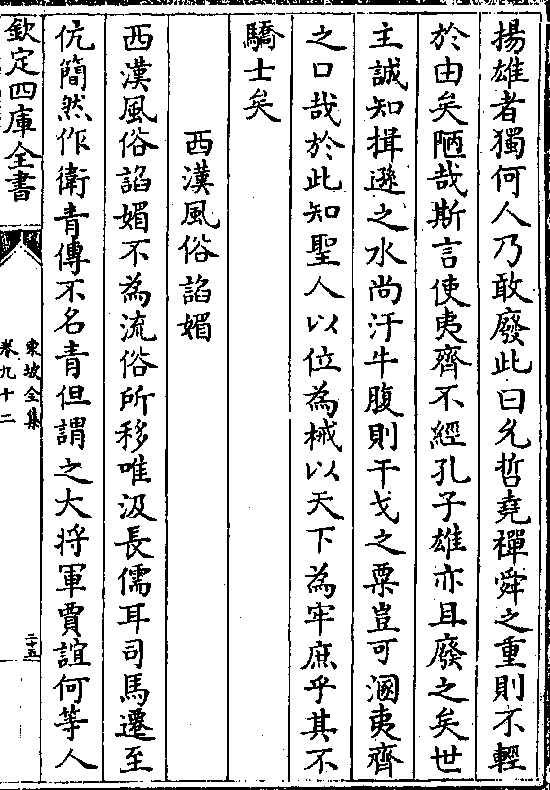 揚雄者獨何人乃敢廢此曰允哲堯禪舜之重則不輕
於由矣陋哉斯言使夷齊不經孔子雄亦且廢之矣世
主誠知揖遜之水尚汙牛腹則干戈之粟豈可溷夷齊
之口哉於此知聖人以位為械以天下為牢庶乎其不
驕士矣
西漢風俗諂媚
西漢風俗諂媚不為流俗所移唯汲長儒耳司馬遷至
伉簡然作衛青傳不名青但謂之大將軍賈誼何等人
欽定四庫全書
東坡全集
卷九十二
二十五